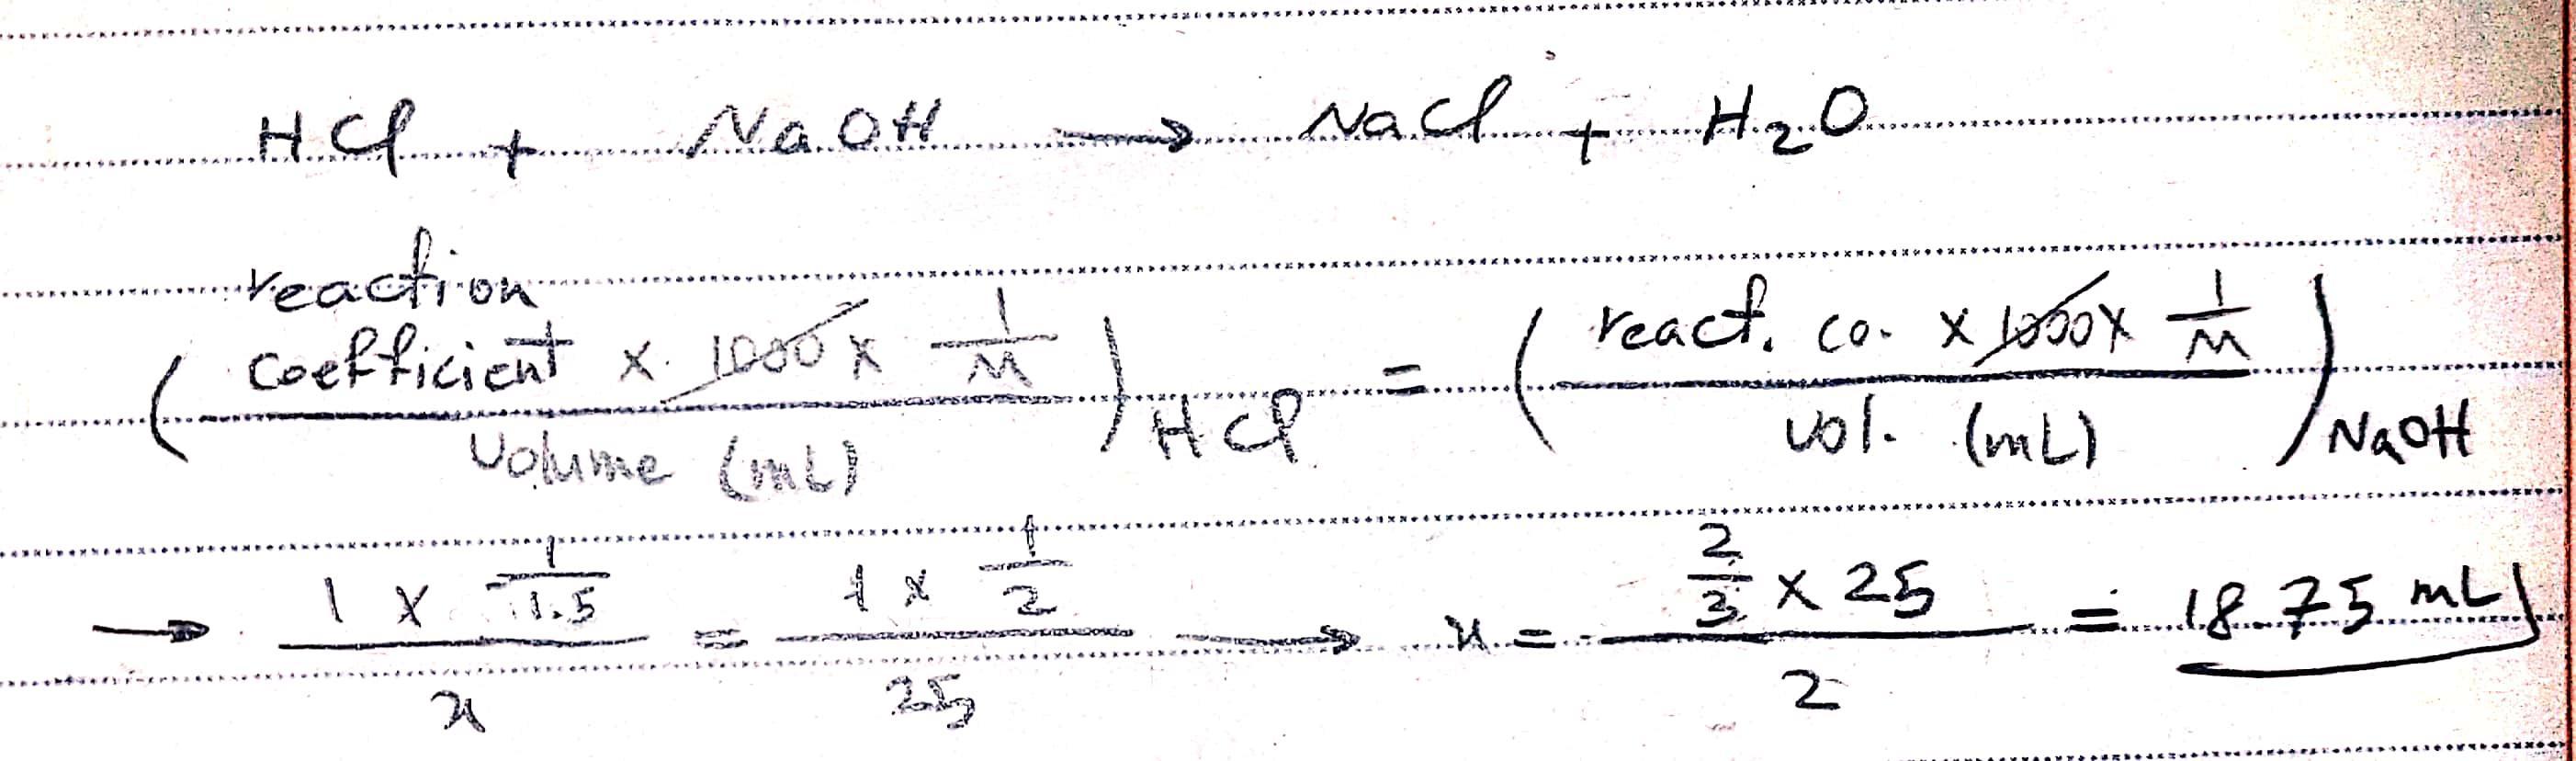 HCl + NaOH → NaCl + H₂O
reaction
( coefficient × 1000 × 1/M / Volume (mL) ) HCl = ( react. co. × 1000 × 1/M / Vol. (mL) ) NaOH
→ 1 × 1/1.5 / x = 1 × 1/2 / 25 → x = 2/3 × 25 / 2 = 18.75 mL